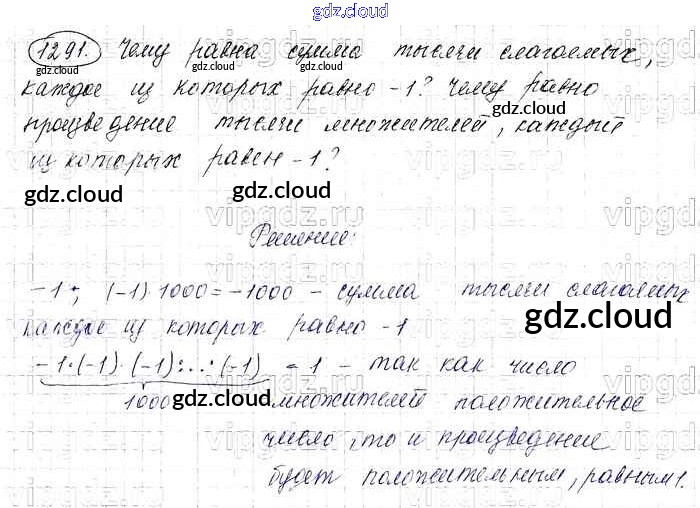 gdz.cloud
1291. Чему равна сумма тысячи слагаемых,
каждое из которых равно -1? Чему равно
произведение тысячи множителей, каждый
из которых равен -1?
Решение:
-1; (-1)·1000=-1000 - сумма тысячи слагаемых
каждое из которых равно -1
-1·(-1)·(-1)·...·(-1) = 1 - так как число
1000 множителей положительное
число, то и произведение
будет положительным, равным 1.
gdz.cloud
gdz.cloud
gdz.cloud
gdz.cloud
gdz.cloud
gdz.cloud
gdz.cloud
gdz.cloud
gdz.cloud
gdz.cloud
vipgdz.ru